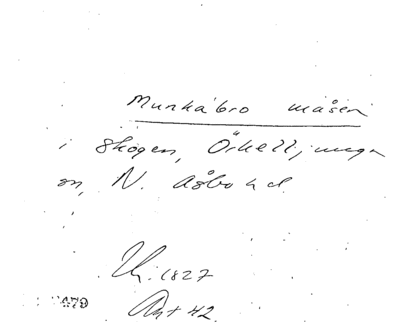 Munkabro måsen
i Skogen, Örkelljunga
sn, N. Åsbo hd.
1827
Akt 42.
479